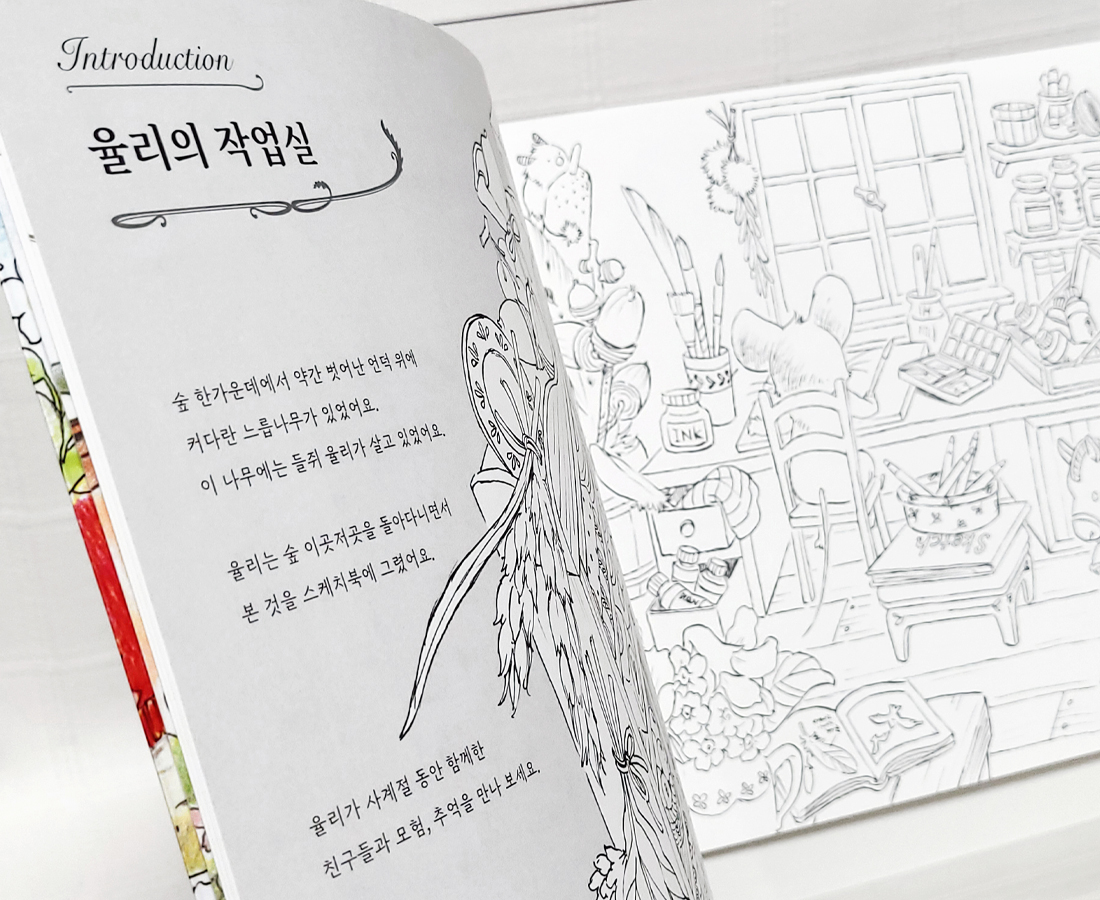 Introduction
율리의 작업실
숲 한가운데에서 약간 벗어난 언덕 위에
커다란 느릅나무가 있었어요.
이 나무에는 들쥐 율리가 살고 있었어요.
율리는 숲 이곳저곳을 돌아다니면서
본 것을 스케치북에 그렸어요.
율리가 사계절 동안 함께한
친구들과 모험, 추억을 만나 보세요.
INK
Sketch